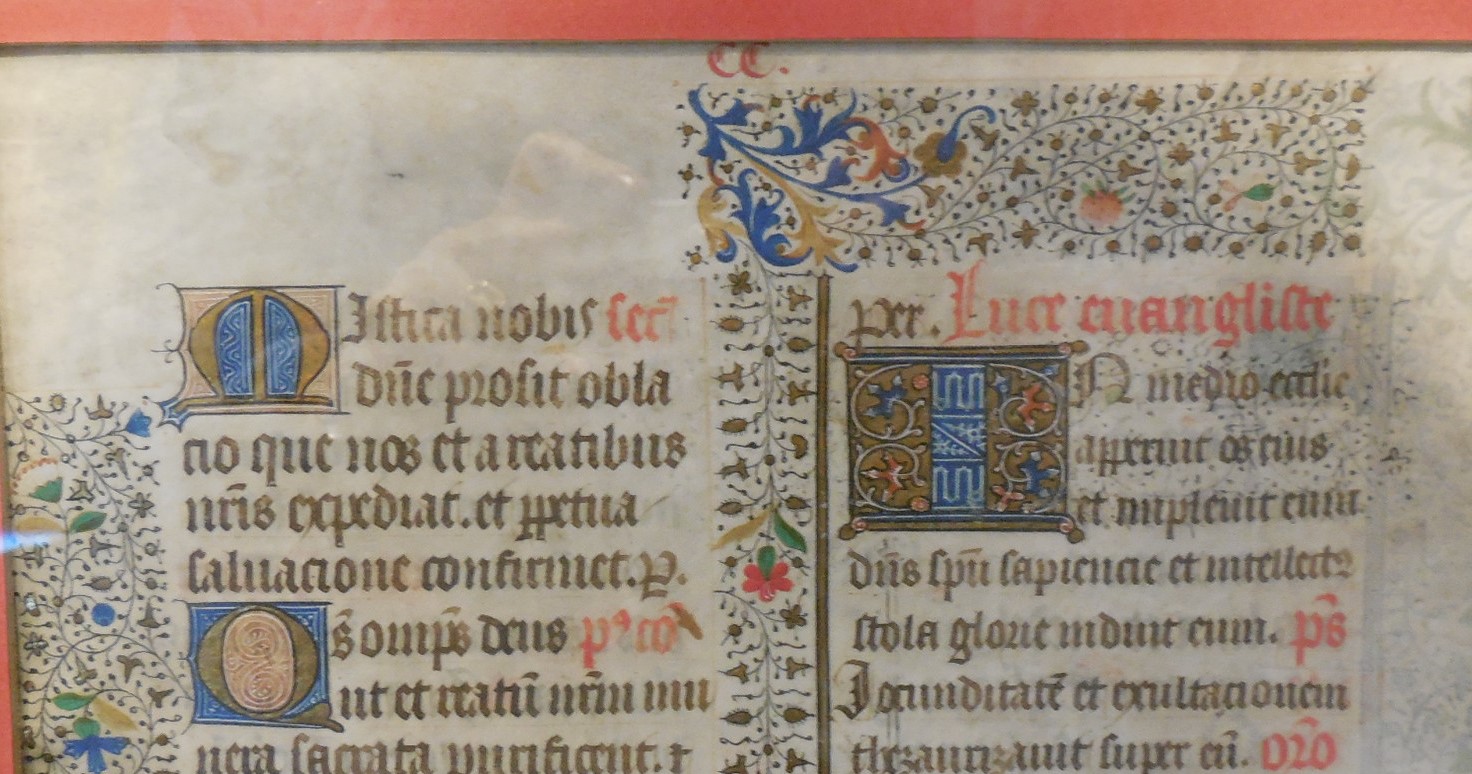 CC.
MIstica nobis sec̄
dn̄e prosit obla
cio que nos et a reatibus
nr̄is expediat. et ꝑpetua
saluacione confirmet. P.
Qs̄ omīps deus pꝰ cō
ut et reatū nr̄m mu
nera sacrata purificent. ⁊
per. Luce euangliste
IN medio eccl̄ie
apperuit os eius
et impleuit eum
dn̄s spū sapiencie et intellectꝰ
stola glorie induit eum. p̄s
Iocunditatē et exultacionem
thezaurizauit super eū. or̄o